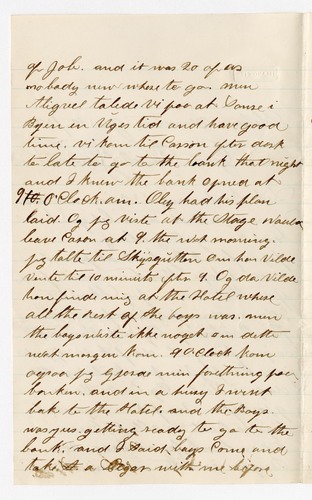 of Job. and it was 20 of us
nobady new where to go. men
Migvel talede vi paa at Louse i
Byen en Uges tid and have good
time. vi kom til Carson efter dark
to late to go to the bank that night
and I knew the bank opned at
9 O'Clock. am. Oley had his plan
laid. Og jeg viste at the Stage would
leave Carson at 9. the next morning.
jeg talte til Skysgutten om han vilde
vente til 10 minuts efter 9. Og da vilde
han finde mig at the Hotel where
all the rest of the boys was. men
the boys viste ikke noget om dette
next morgen kom. 9 O'Clock kom
ogsaa jeg Gjorde min forething paa
banken. and in a hurry I went
bak to the Hotel and the Boys
was jus getting ready to go to the
bank. and I said boys come and
take a Cigar with me before